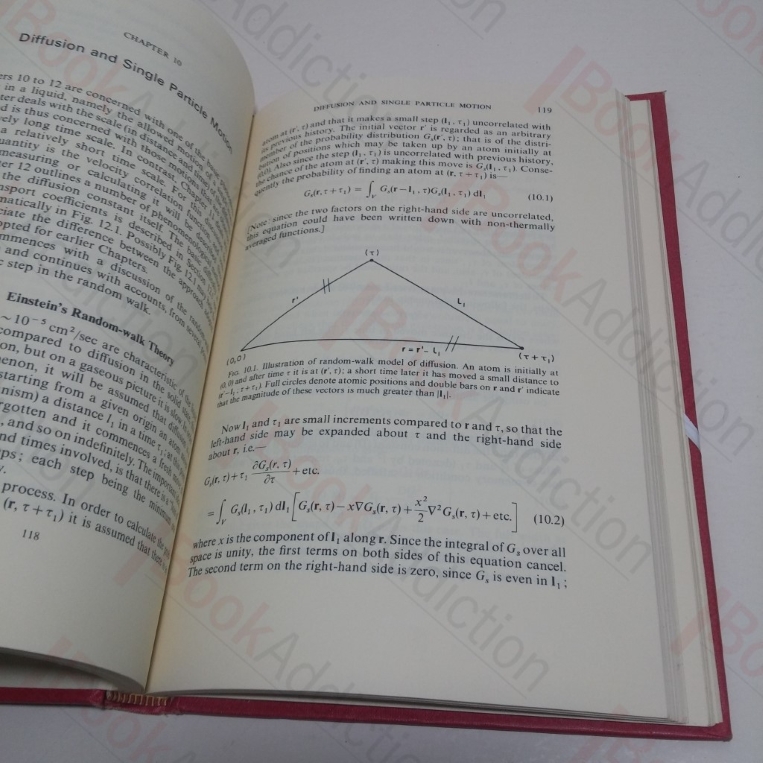 CHAPTER 10
Diffusion and Single Particle Motion
ers 10 to 12 are concerned with one of the
in a liquid, namely, the allowed motion
ter deals with the scale (in distance and
d is thus concerned with those motions
vely long time scale. In contrast Chapter 11
a relatively short time scale. For
quantity is the velocity correlation function
measuring or calculating it will be
12 outlines a number of phenomenological
the diffusion constant itself. The
nsport coefficients is described in Section
matically in Fig. 12.1. Possibly Fig. 12.1
ciate the difference between the approach
opted for earlier Chapters.
mmences with a discussion of the random
and continues with accounts, from several
step in the random walk.
Einstein's Random-walk Theory
~ 10⁻⁵ cm²/sec are characteristic of
compared to diffusion in the solid
on, but on a gaseous picture it is slow
enon, it will be assumed that
starting from a given origin an atom
nism) a distance l₁ in a time τ₁;
rgotten and it commences a fresh
, and so on indefinitely. The important
nd times involved, is that there is a
ps; each step being the minimum
y.
process. In order to calculate the
(r, τ + τ₁) it is assumed that the
118
DIFFUSION AND SINGLE PARTICLE MOTION 119
atom at (r′, τ) and that it makes a small step (l₁, τ₁) uncorrelated with
its previous history. The initial vector r′ is regarded as an arbitrary
member of the probability distribution Gₛ(r′, τ); that is of the distri-
bution of positions which may be taken up by an atom initially at
(0,0). Also since the step (l₁, τ₁) is uncorrelated with previous history,
the chance of the atom at (r′, τ) making this move is Gₛ(l₁, τ₁). Conse-
quently the probability of finding an atom at (r, τ + τ₁) is—
Gₛ(r, τ + τ₁) = ∫ᵥ Gₛ(r − l₁, τ)Gₛ(l₁, τ₁) dl₁ (10.1)
[Note: since the two factors on the right-hand side are uncorrelated,
this equation could have been written down with non-thermally
averaged functions.]
(τ)
r′
L₁
r = r′ − L₁
(0,0)
(τ + τ₁)
FIG. 10.1. Illustration of random-walk model of diffusion. An atom is initially at
(0, 0) and after time τ it is at (r′, τ); a short time later it has moved a small distance to
(r′ − l₁, τ + τ₁). Full circles denote atomic positions and double bars on r and r′ indicate
that the magnitude of these vectors is much greater than |l₁|.
Now l₁ and τ₁ are small increments compared to r and τ, so that the
left-hand side may be expanded about τ and the right-hand side
about r, i.e.—
Gₛ(r, τ) + τ₁ ∂Gₛ(r, τ)/∂τ + etc.
= ∫ᵥ Gₛ(l₁, τ₁) dl₁ [Gₛ(r, τ) − x∇Gₛ(r, τ) + x²/2 ∇²Gₛ(r, τ) + etc.] (10.2)
where x is the component of l₁ along r. Since the integral of Gₛ over all
space is unity, the first terms on both sides of this equation cancel.
The second term on the right-hand side is zero, since Gₛ is even in l₁;
BookAddiction